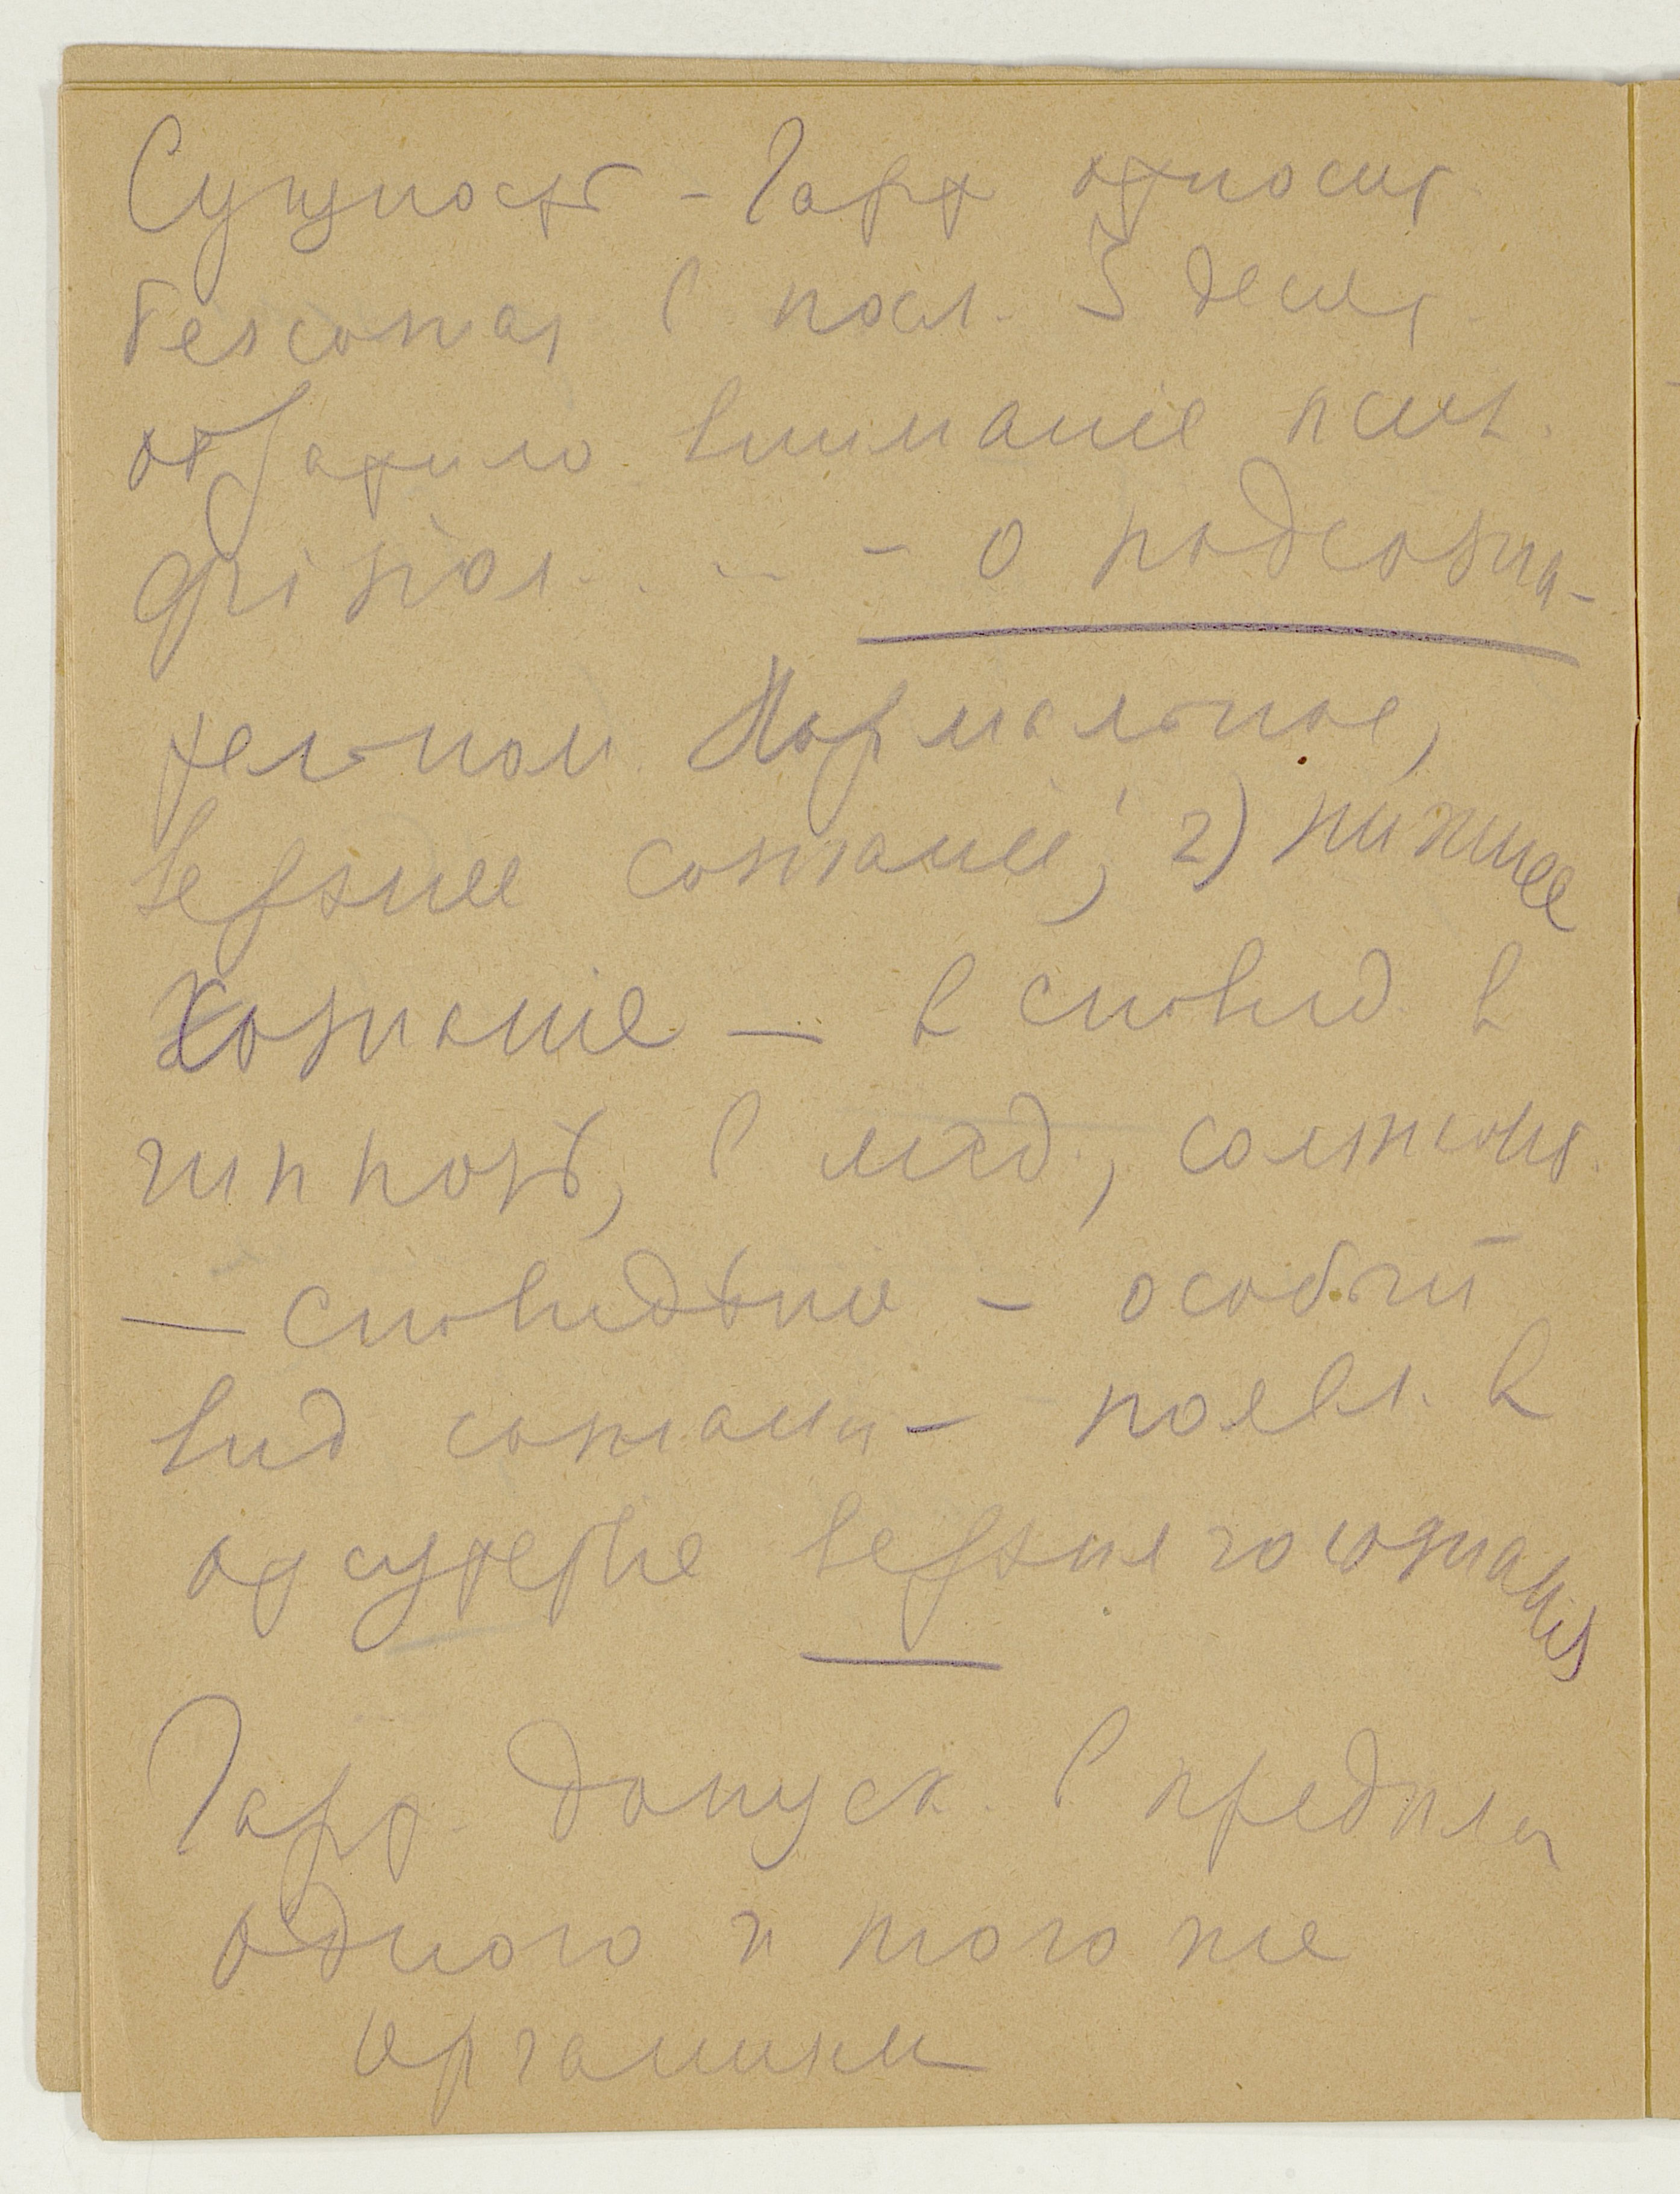 Сущность - Гарт относит.
бессознат. В посл. 3 десят.
обратило внимание псих.
физiол. - о подсозна-
тельном. Нормальное,
верхнее сознание; 2) нижнее
сознанiе — в сновид. в
гипнозѣ, в мед.,
— сновидѣние - особый
вид сознания - появл. в
отсутствие верхнего сознания
Гарт. допуск. в пределах
одного и того же
организм